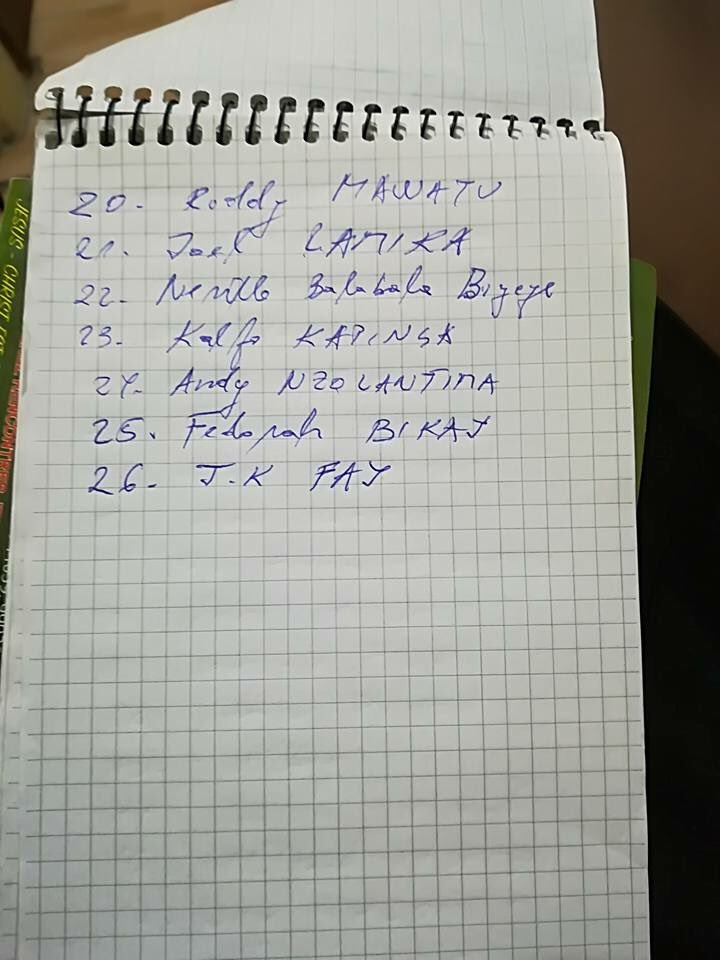 20. Roddy MAWATU
21. Joel LAMIKA
22. Neville Balabala Bizeze
23. Kalfo KAPINGA
24. Andy NZOLANTIMA
25. Fedorah BIKAY
26. J.K FAY
JESUS-CHRIST